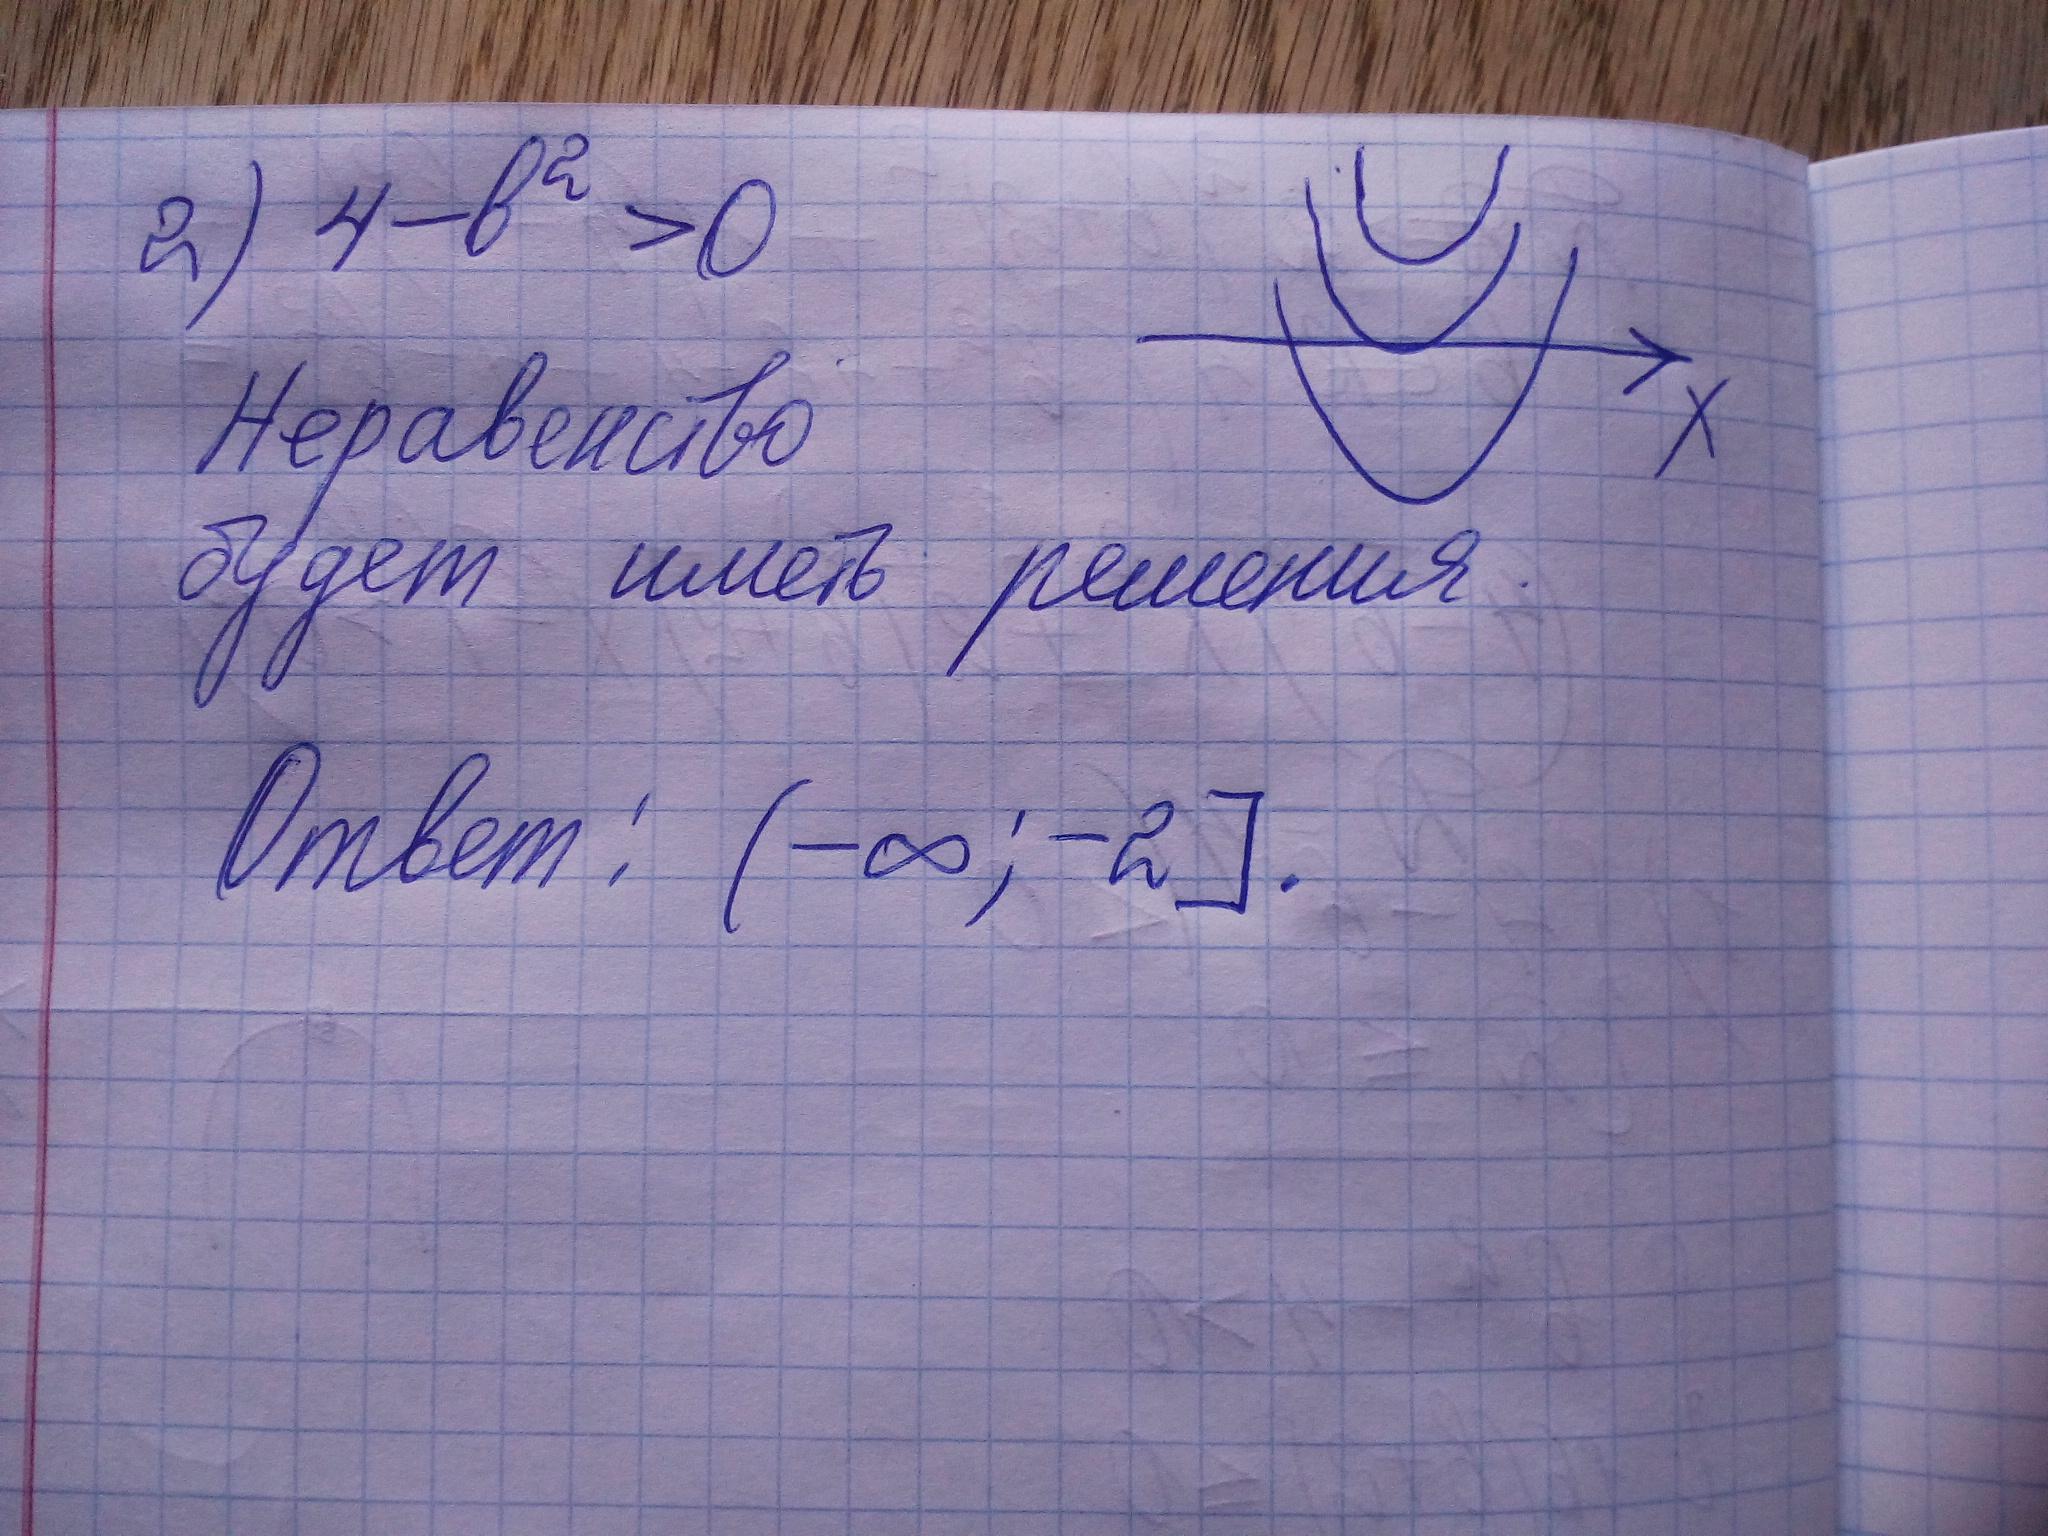 2) 4-в² >0
X
Неравенство
будет иметь решения.
Ответ: (-∞; -2].